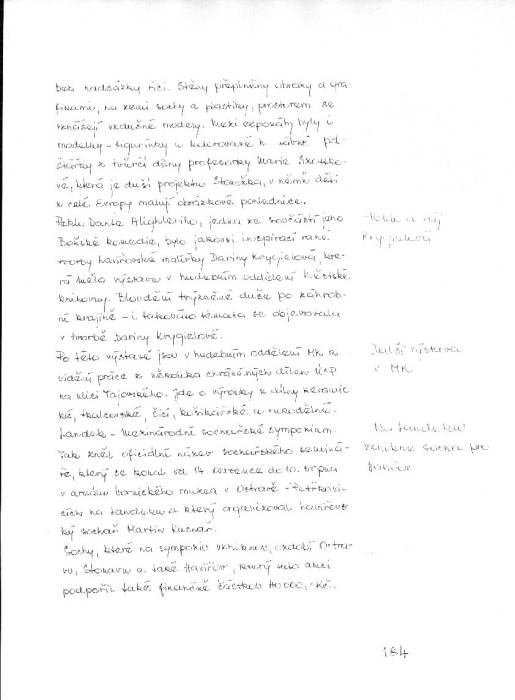 bez nadsázky říci. Stěny přeplněny obrazy a gra-
fikami, na zemi sochy a plastiky, prostorem se
vznášejí vzdušné modely. Mezi exponáty byly i
modelky - figurínky u kulturované k
z tvůrčí dílny profesorky Marie
vé, která je duší projektu Stonožka, v němž děti
z celé Evropy malují obrázkové pohlednice.
Peklo Danta Alighieriho, jedna ze součástí jeho
Božské komedie, bylo jakousi inspirací rané
tvorby havířovské malířky Dariny Krygielové, kte-
rá měla výstavu v hudebním oddělení Městské
knihovny. Bloudění trýzněné duše po záhrob-
ní krajině - i takováto témata se objevovala
v tvorbě Dariny Krygielové.
Po této výstavě jsou v hudebním oddělení MK k
vidění práce z několika chráněných dílen ÚSP
na ulici Tajovského. Jde o výrobky z dílny keramic-
ké, tkalcovské, šicí, košíkářské a rukodělné.
Landek - Mezinárodní sochařské sympozium.
Tak zněl oficiální název sochařského seminá-
ře, který se konal od 14. července do 10. srpna
v areálu hornického muzea v Ostravě - Petřkovi-
cích na Landeku a který organizoval havířovs-
ký sochař Martin Kuchař.
Sochy, které na sympoziu vzniknou, ozdobí Ostra-
vu, Stonavu a také Havířov, který tuto akci
podpořil také finančně částkou 40 000,- Kč.
Peklo a ráj
Krygielové
Další výstava
v MK
Na Landeku
vznikne socha pro
Havířov
184